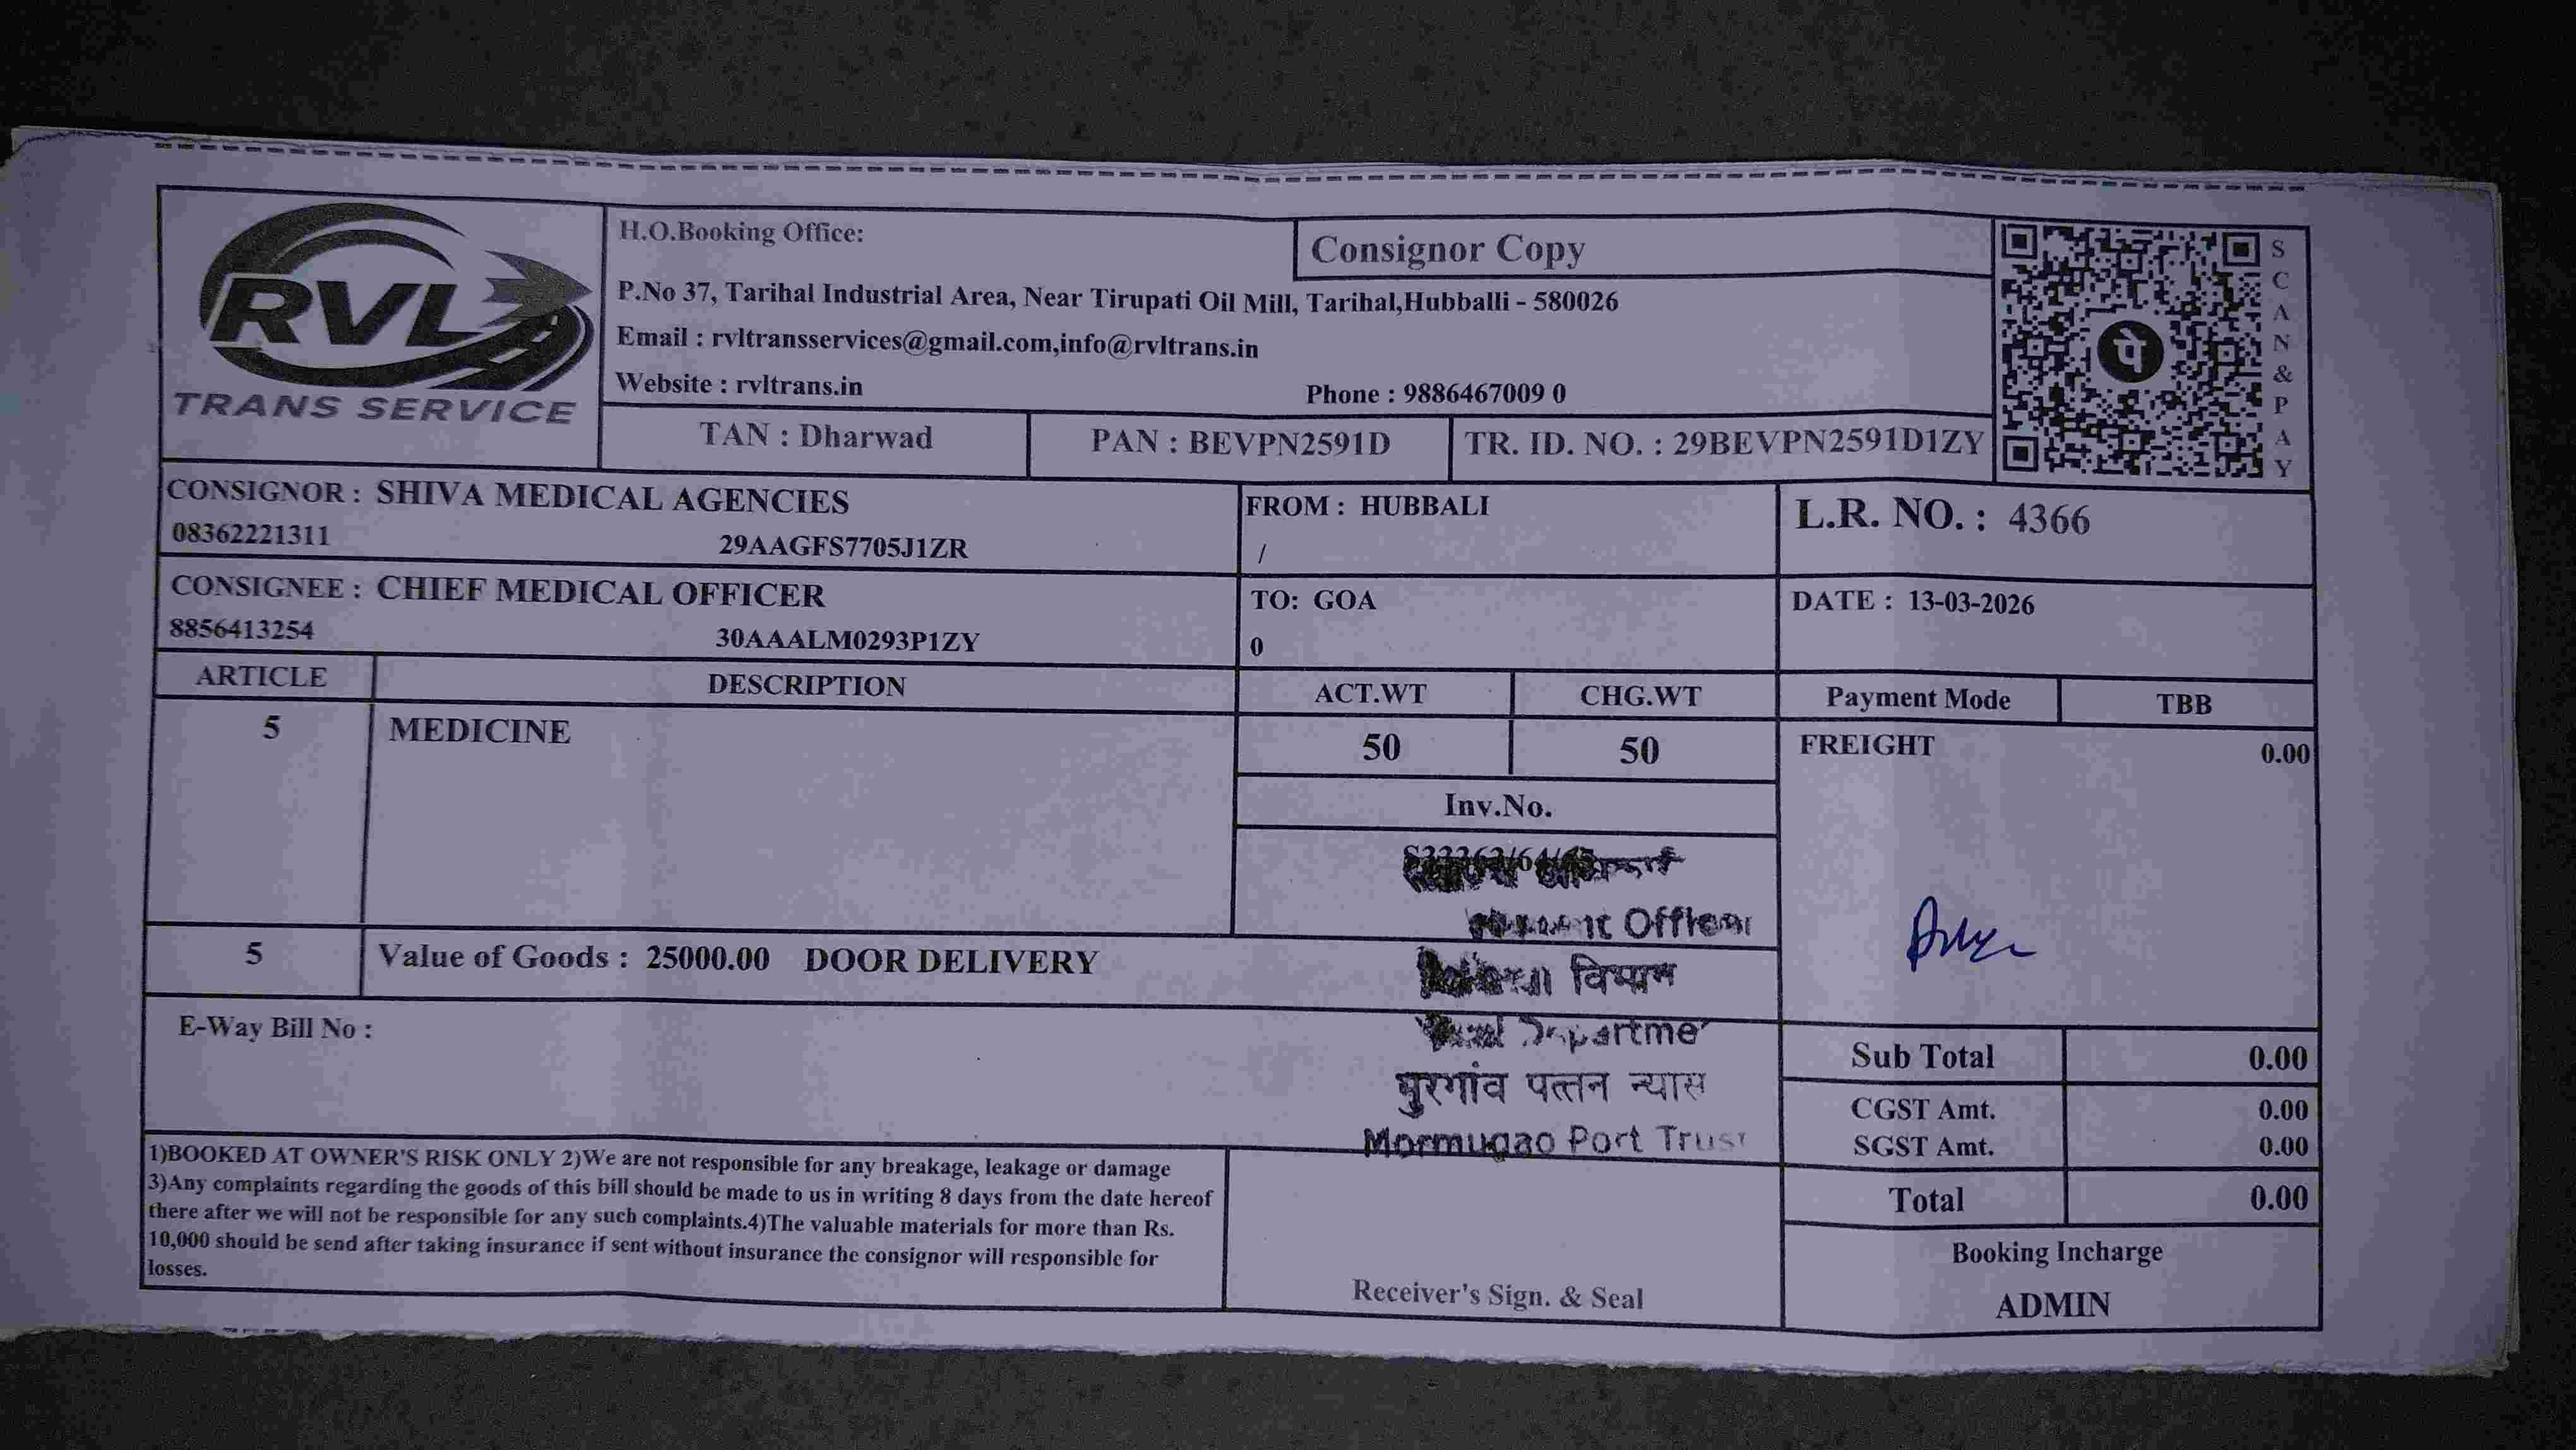 RVL
TRANS SERVICE
H.O.Booking Office:
Consignor Copy
P.No 37, Tarihal Industrial Area, Near Tirupati Oil Mill, Tarihal,Hubballi - 580026
Email : rvltransservices@gmail.com,info@rvltrans.in
Website : rvltrans.in Phone : 9886467009 0
TAN : Dharwad PAN : BEVPN2591D TR. ID. NO. : 29BEVPN2591D1ZY
पे
SCAN&PAY
CONSIGNOR : SHIVA MEDICAL AGENCIES
08362221311 29AAGFS7705J1ZR
FROM : HUBBALI
/
L.R. NO. : 4366
CONSIGNEE : CHIEF MEDICAL OFFICER
8856413254 30AAALM0293P1ZY
TO: GOA
0
DATE : 13-03-2026
ARTICLE DESCRIPTION ACT.WT CHG.WT Payment Mode TBB
5 MEDICINE 50 50 FREIGHT 0.00
Inv.No.
विभाग
मुरगांव पत्तन न्यास
Mormugao Port Trust
5 Value of Goods : 25000.00 DOOR DELIVERY
E-Way Bill No :
Sub Total 0.00
CGST Amt. 0.00
SGST Amt. 0.00
Total 0.00
1)BOOKED AT OWNER'S RISK ONLY 2)We are not responsible for any breakage, leakage or damage
3)Any complaints regarding the goods of this bill should be made to us in writing 8 days from the date hereof
there after we will not be responsible for any such complaints.4)The valuable materials for more than Rs.
10,000 should be send after taking insurance if sent without insurance the consignor will responsible for
losses.
Receiver's Sign. & Seal
Booking Incharge
ADMIN